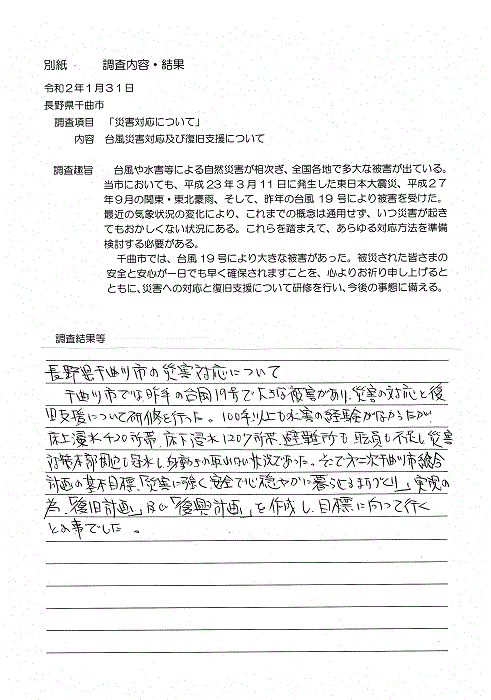 別紙　　調査内容・結果
令和２年１月３１日
長野県千曲市
調査項目　「災害対応について」
内容　台風災害対応及び復旧支援について
調査趣旨　台風や水害等による自然災害が相次ぎ、全国各地で多大な被害が出ている。
当市においても、平成２３年３月１１日に発生した東日本大震災、平成２７
年９月の関東・東北豪雨、そして、昨年の台風１９号により被害を受けた。
最近の気象状況の変化により、これまでの概念は通用せず、いつ災害が起き
てもおかしくない状況にある。これらを踏まえて、あらゆる対応方法を準備
検討する必要がある。
千曲市では、台風１９号により大きな被害があった。被災された皆さまの
安全と安心が一日でも早く確保されますことを、心よりお祈り申し上げると
ともに、災害への対応と復旧支援について研修を行い、今後の事態に備える。
調査結果等
長野県千曲市の災害対応について
千曲市では、昨年の台風19号で大きな被害があり、災害の対応と復
旧支援について研修を行った。100年以上も水害の経験がなかったが
床上浸水420所帯、床下浸水1207所帯、避難所も職員も不足し災害
対策本部周辺も冠水し、身動きの取れない状況であった。そこで第二次千曲市総合
計画の基本目標、「災害に強く安全で心穏やかに暮らせるまちづくり」実現の
為、「復旧計画」及び「復興計画」を作成し、目標に向って行く
との事でした。